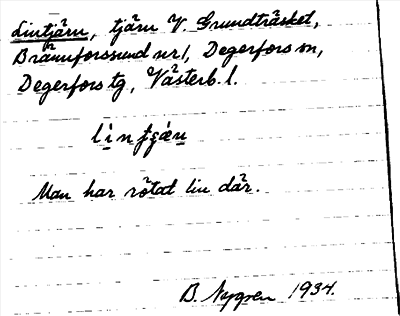 Lintjärn, tjärn V. Grundträsket,
Brännforssund nr 1, Degerfors sn,
Degerfors tg, Västerb. l.
Man har rötat lin där.
B. Nygren 1934.